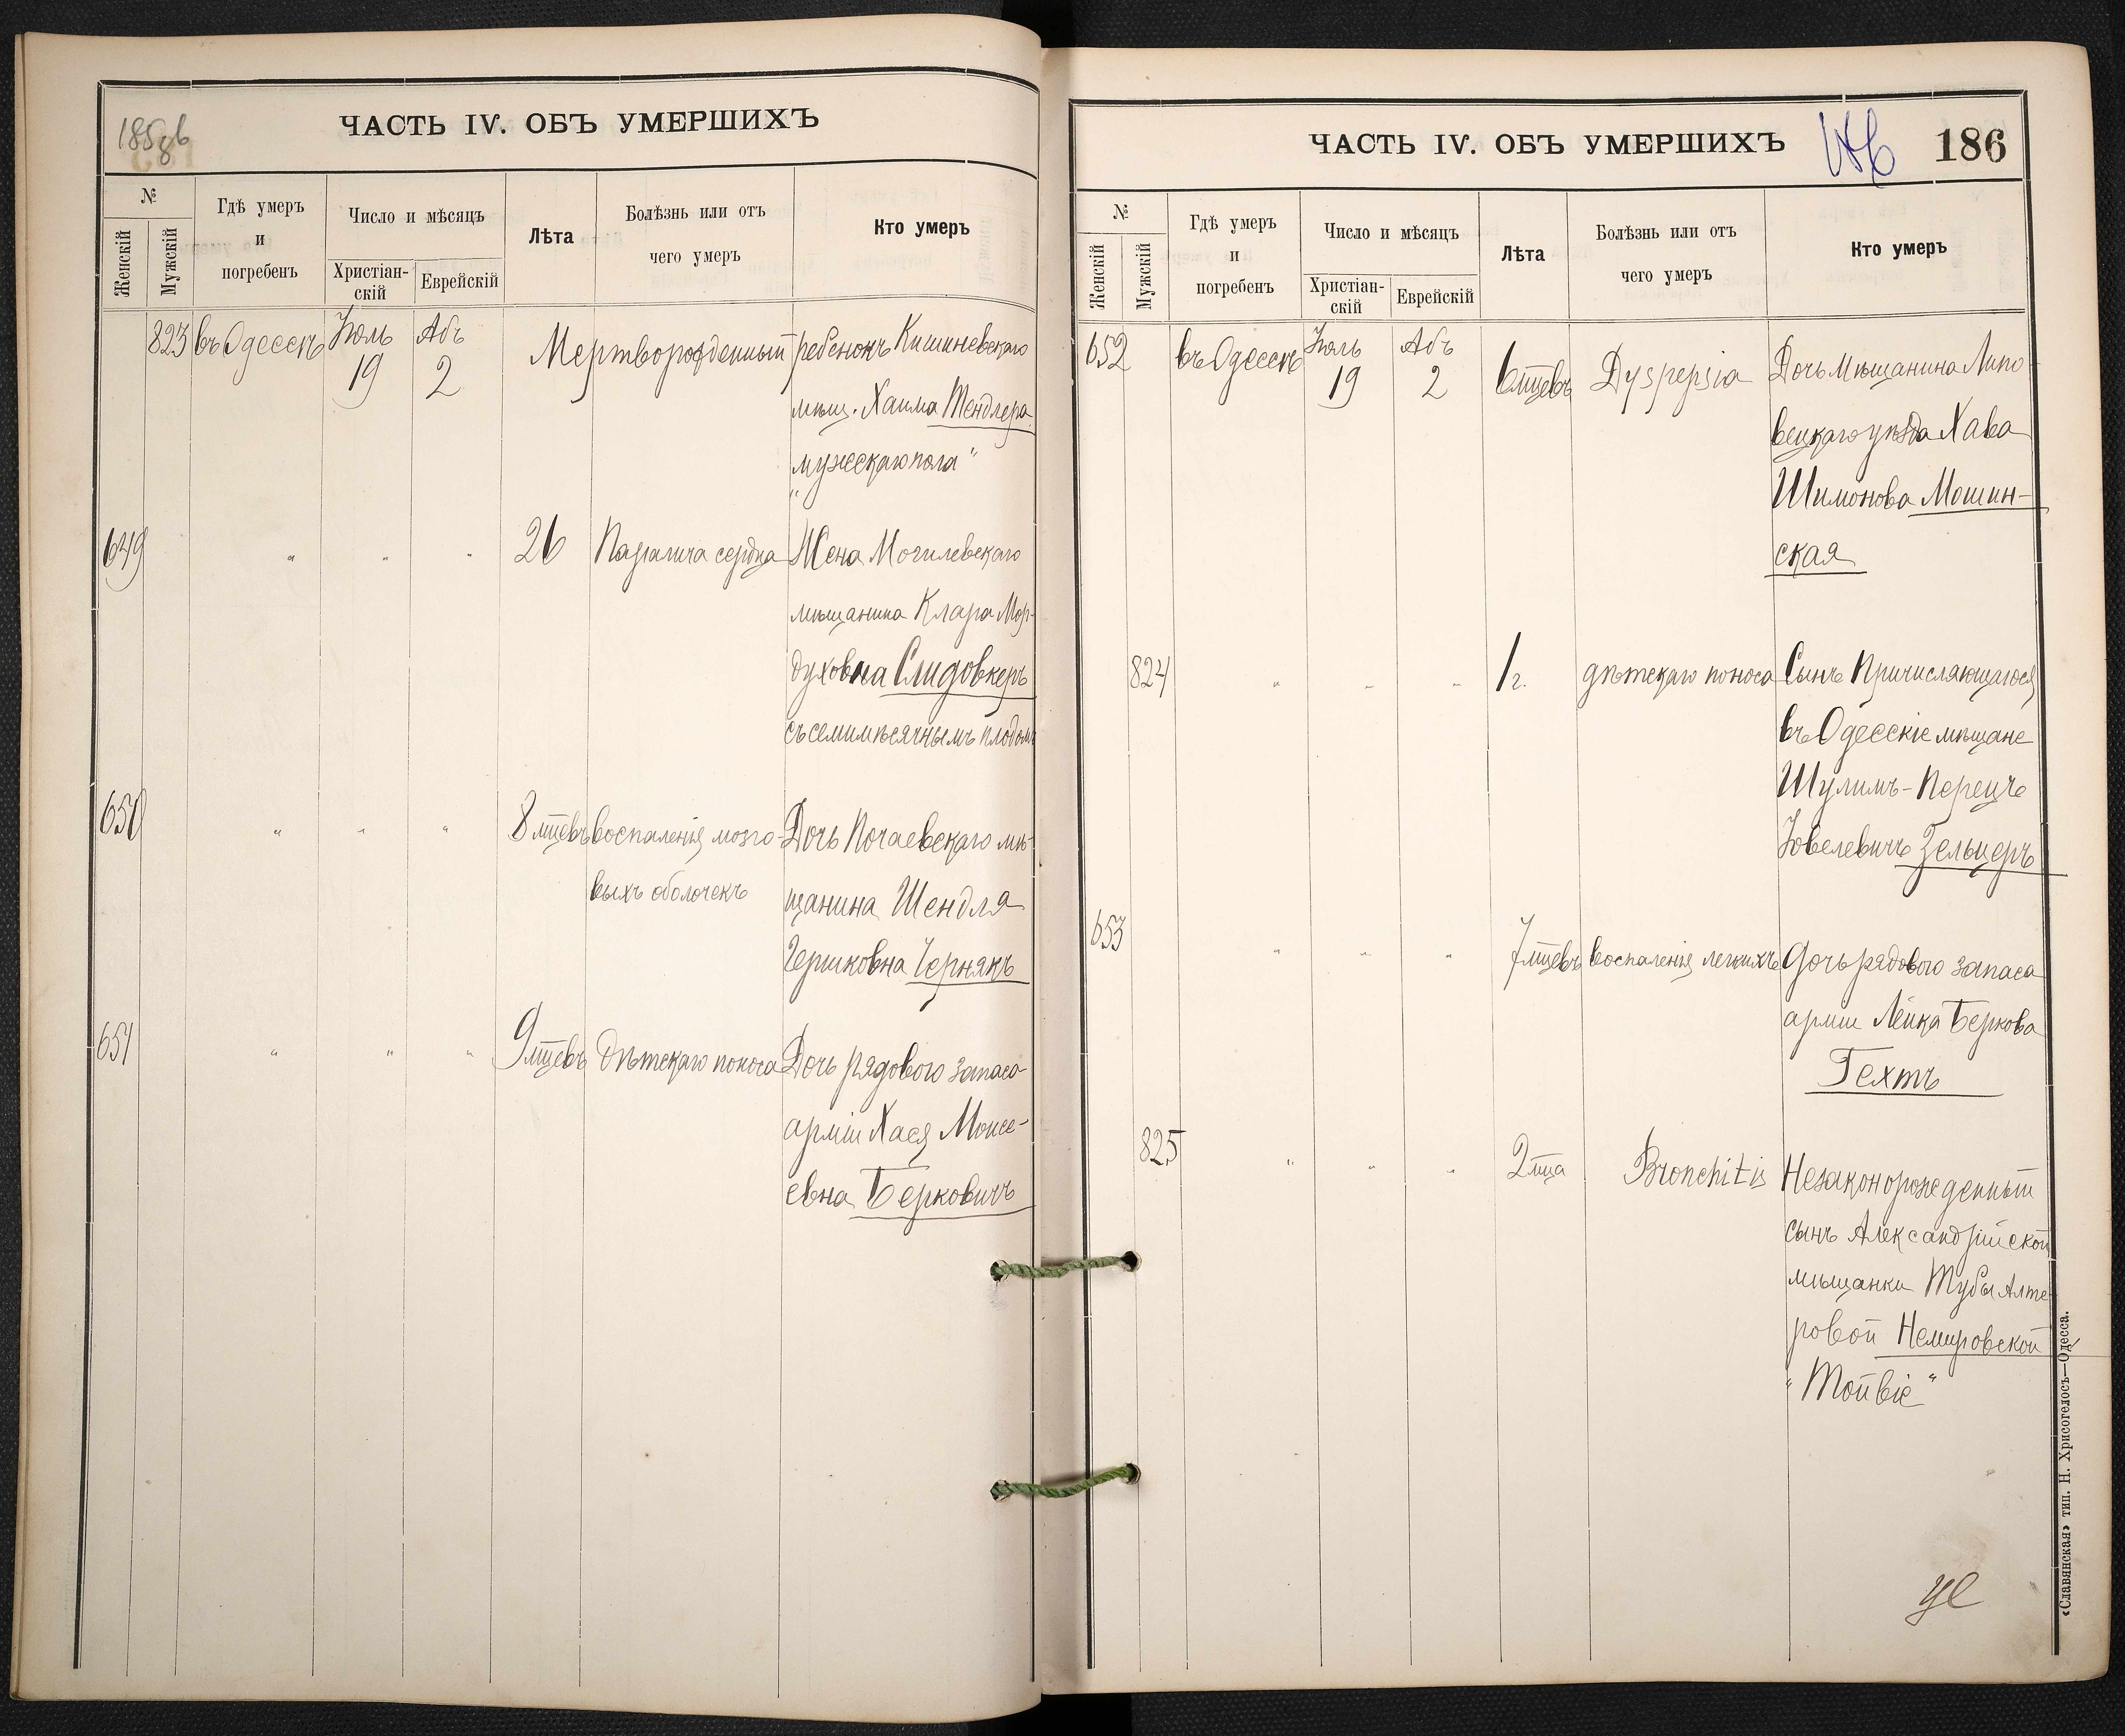 ЧАСТЬ IV. ОБЪ УМЕРШИХЪ
№
Женскій
Мужскій
Гдѣ умеръ
и
погребенъ
Число и мѣсяцъ
Христіан-
скій
Еврейскій
Лѣта
Болѣзнь или отъ
чего умеръ
Кто умеръ
823 въ Одессѣ Іюль 19 Абъ 2 Мертворожденный ребенокъ Кишиневскаго
мѣщ. Хаима Тендлера
"мужескаго пола"
649 " " " 26 Паралича сердца Жена Могилевскаго
мѣщанина Клара Мор-
духовна Слидовкеръ
съ семимѣсячнымъ плодомъ
650 " " " 8 мцевъ воспаленія мозго- Дочь Почаевскаго мѣ-
выхъ оболочекъ щанина Шендля
Гершковна Чернякъ
651 " " " 9 мцевъ дѣтскаго поноса Дочь рядового запаса
арміи Хася Моисе-
евна Берковичъ
ЧАСТЬ IV. ОБЪ УМЕРШИХЪ
186
№
Женскій
Мужскій
Гдѣ умеръ
и
погребенъ
Число и мѣсяцъ
Христіан-
скій
Еврейскій
Лѣта
Болѣзнь или отъ
чего умеръ
Кто умеръ
652 въ Одессѣ Іюль 19 Абъ 2 6 мцевъ Dyspepsia Дочь Мѣщанина Липо-
вецкаго уѣзда Хава
Шимонова Мошин-
ская
824 " " " 1 г. дѣтскаго поноса Сынъ Причисляющагося
въ Одесскіе мѣщане
Шулимъ-Перецъ
Іовелевичъ Зельцеръ
653 " " " 7 мцевъ воспаленія легкихъ Дочь рядового запаса
арміи Лейка Беркова
Гехтъ
825 " " " 2 мца Bronchitis Незаконорожденный
сынъ Александрійской
мѣщанки Тубы Алте-
ровой Немировской
"Тойвіе"
«Славянская» тип. Н. Хрисогелосъ—Одесса.